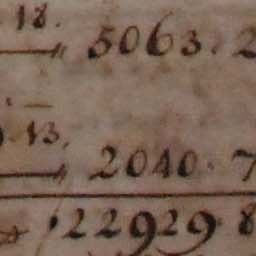 18.
5063. 2
13.
2040. 7
22929. 8